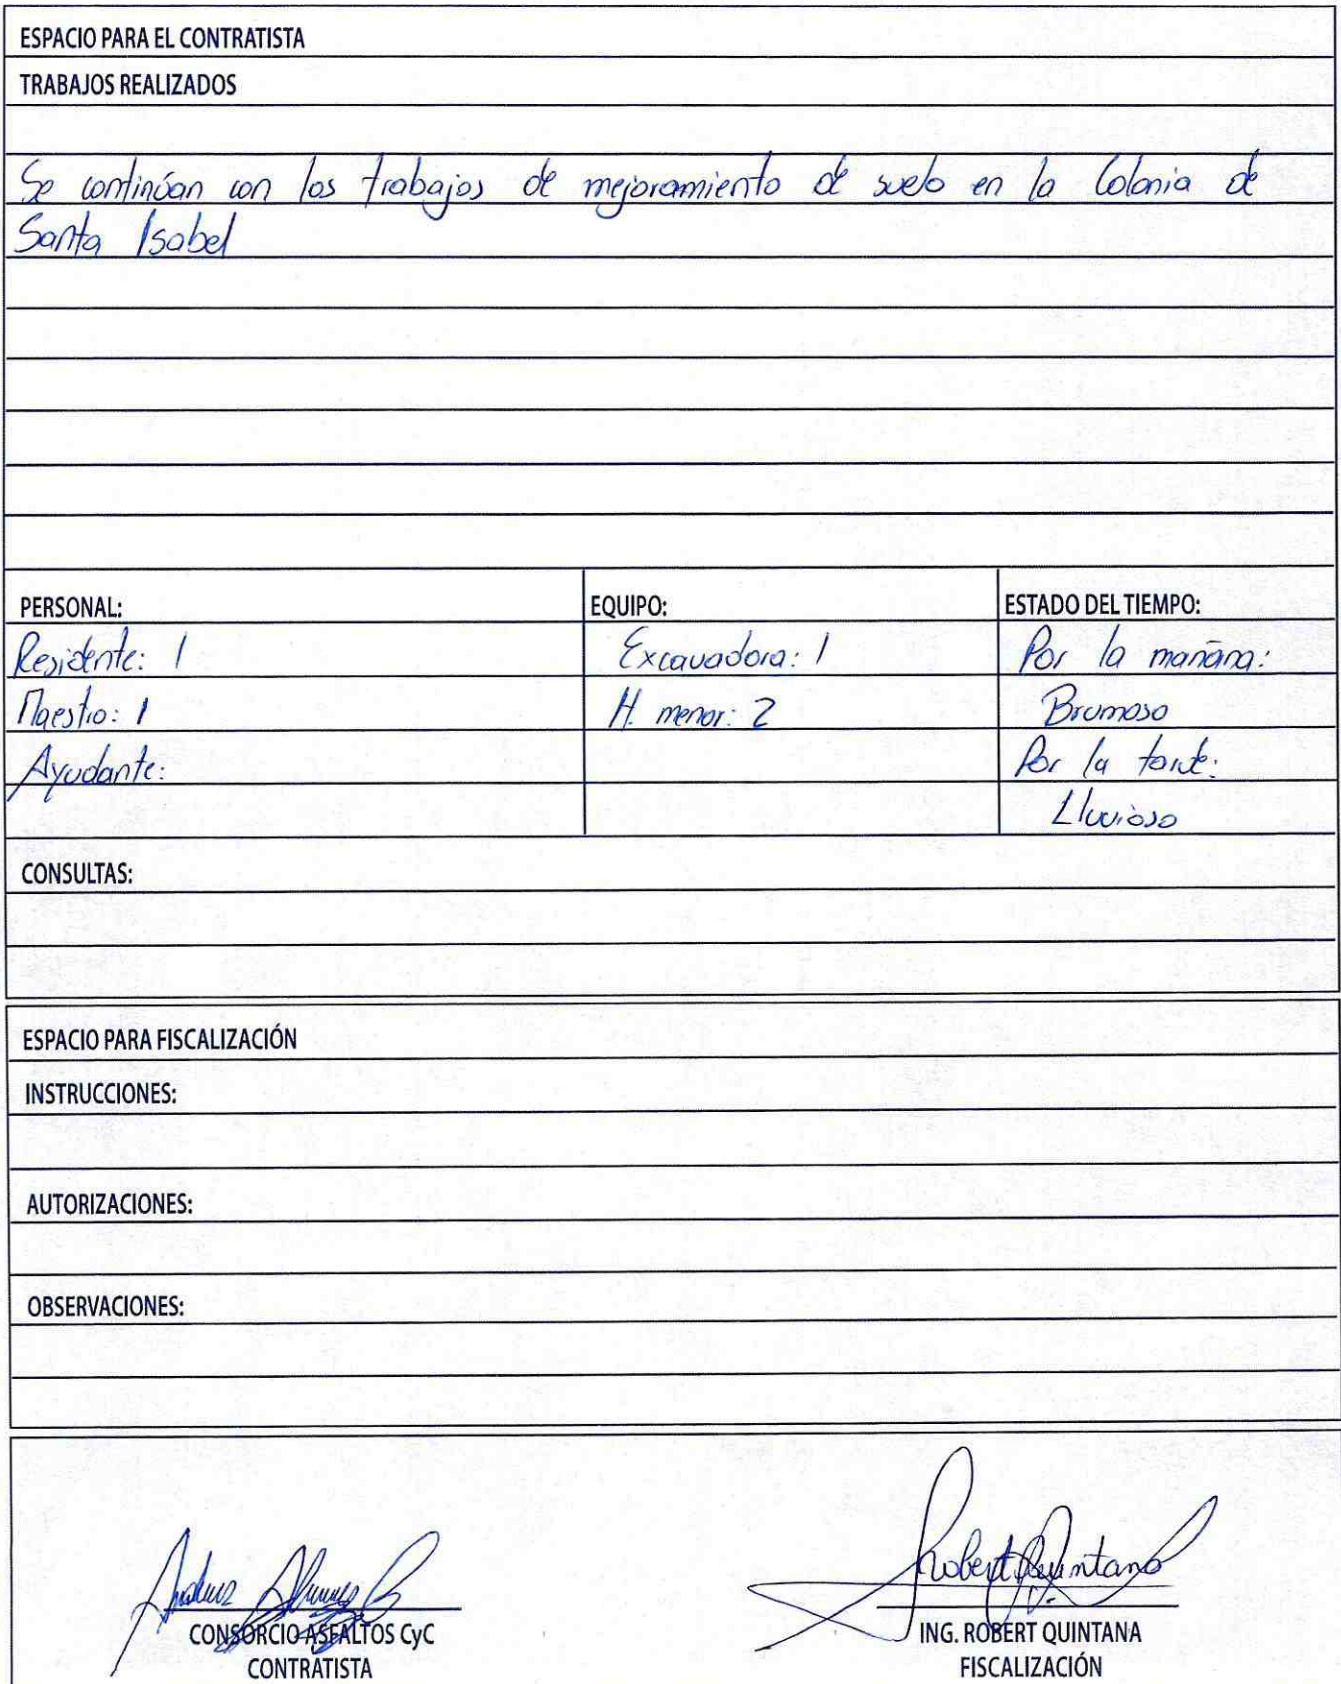 ESPACIO PARA EL CONTRATISTA
TRABAJOS REALIZADOS
Se continúan con los trabajos de mejoramiento de suelo en la Colonia de
Santa Isabel
PERSONAL:
Residente: 1
Maestro: 1
Ayudante:
EQUIPO:
Excavadora: 1
H. menor: 2
ESTADO DEL TIEMPO:
Por la mañana:
Brumoso
Por la tarde:
Lluvioso
CONSULTAS:
ESPACIO PARA FISCALIZACIÓN
INSTRUCCIONES:
AUTORIZACIONES:
OBSERVACIONES:
CONSORCIO ASFALTOS CyC
CONTRATISTA
Robert Quintana
ING. ROBERT QUINTANA
FISCALIZACIÓN